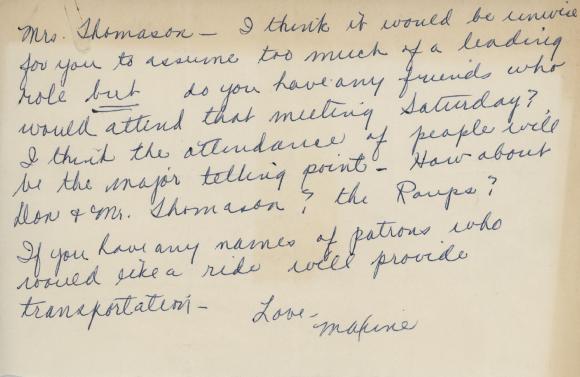 Mrs. Thomason — I think it would be unwise
for you to assume too much of a leading
role but do you have any friends who
would attend that meeting Saturday?
I think the attendance of people will
be the major telling point — How about
Don & Mr. Thomason? the Roups?
If you have any names of patrons who
would like a ride will provide
transportation —
Love —
Maxine